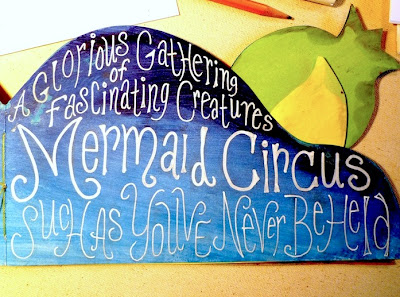 A Glorious Gathering
of
Fascinating Creatures
Mermaid Circus
Such As You've Never Beheld